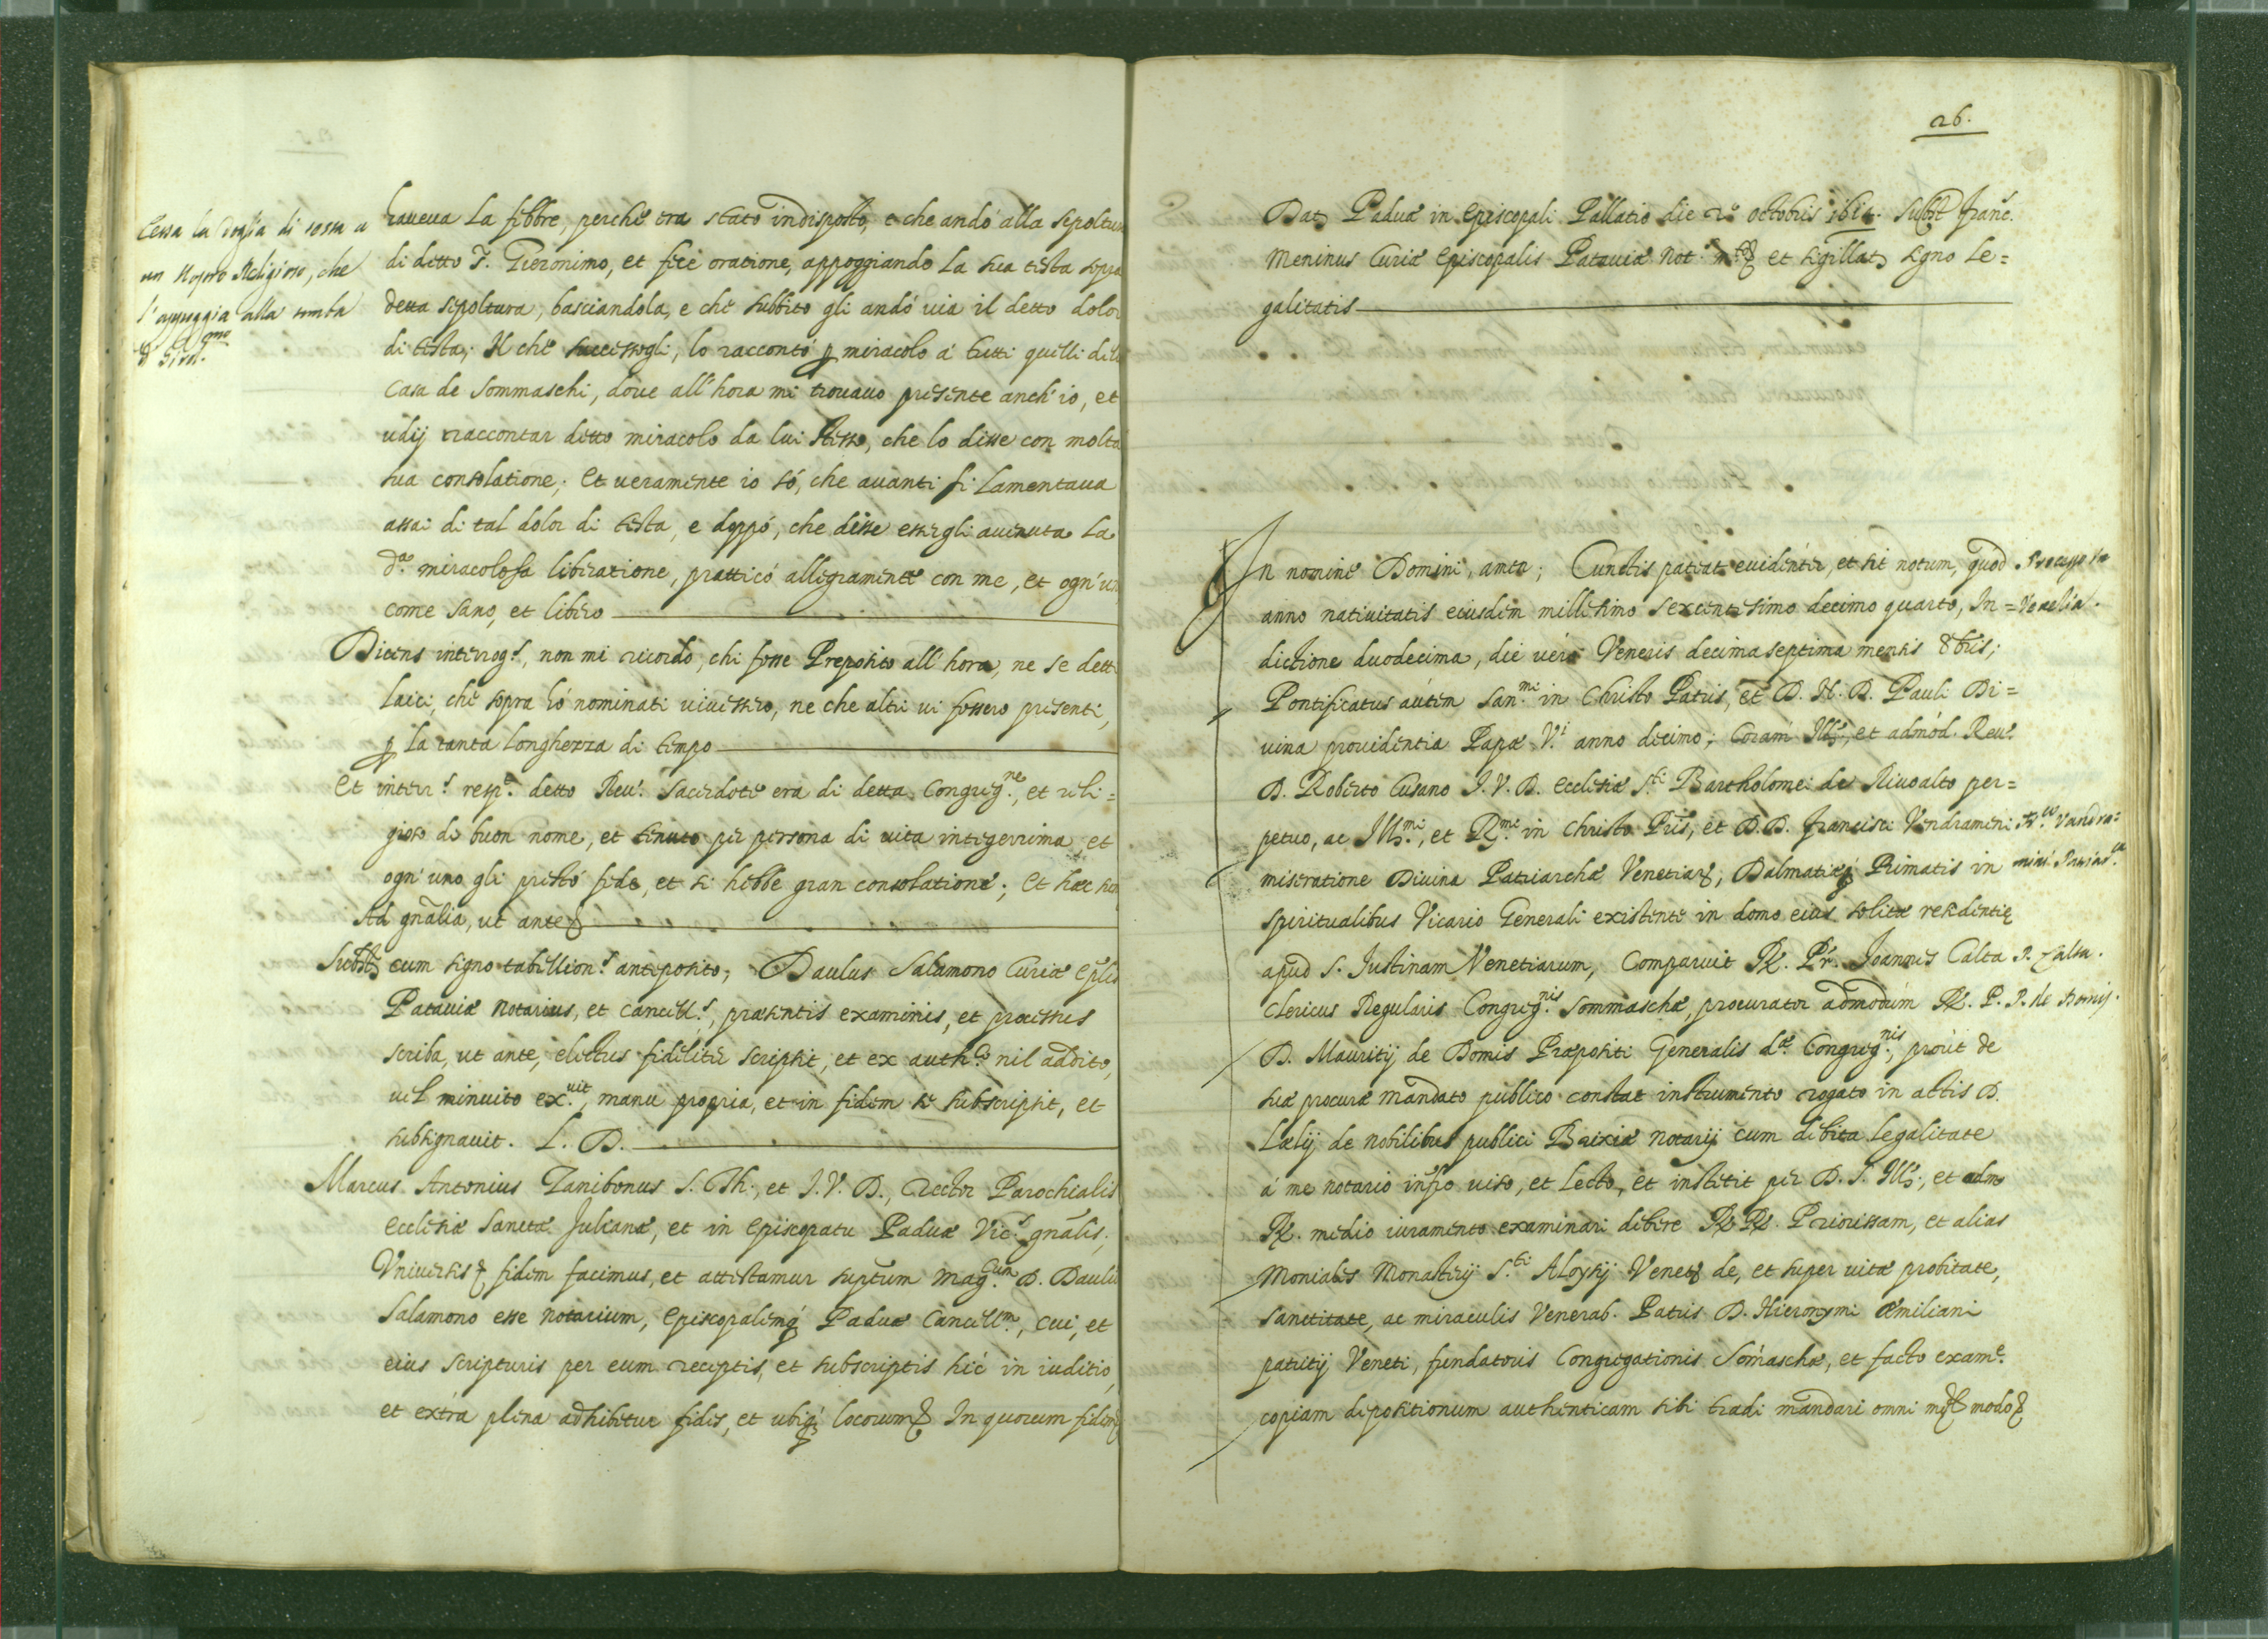 Cessa la doglia di testa a
un nostro Religioso, che
l'appoggia alla tomba
haueua La febbre, perche era stato indisposto, e che andò alla sepoltur
di ditto P. Gieronimo, et fece oratione, appoggiando La sua testa sopra
detta sepoltura, basciandola, e che subbito gli andò uia il detto dolor
di testa; Il che successogli, lo raccontò p miracolo à tutti quelli dill
Casa de Sommaschi, doue all'hora mi trouauo presente anch'io, et
udij raccontar ditto miracolo da lui stesso, che lo disse con molta
sua consolatione; Et ueramente io sò, che auanti si Lamentaua
assai di tal dolor di testa, e doppò, che disse essergli auenuta La
d.a miracolosa liberatione, pratticò allegramente con me, et ogn'un
come sano, et libero
Dicens interrog.s, non mi ricordo, chi fosse Preposito all'hora, ne se detti
laici, che sopra hò nominati uiuessero, ne che altri ui fossero presenti,
p La tanta Longhezza di tempo
Et interr.s resp.t detto Reu. Sacerdote era di detta Congreg.ne, et reli=
gioso di buon nome, et tenuto per persona di uita integerrima, et
ogn'uno gli prestò fede, et si hebbe gran consolatione; Et hæc
Ad gnalia, ut ante
Subst cum signo tabellion.s anteposito; Paulus Salamono Curiæ Eplis
Patauiæ Notarius, et Cancell.s, præsentis examinis, et processus
scriba, ut ante, electus fideliter scripsit, et ex auth.co nil addito,
uel minuito ex.uit, manu propria, et in fidem se subscripsit, et
subsignauit. L. D.
Marcus Antonius Zanibonus S. Th., et I. V. D., Rector Parochialis
Ecclesiæ Sanctæ Julianæ, et in Episcopatu Paduæ Vic.s gnalis;
Vniuersis fidem facimus, et attestamur suptum Mag.cum D. Paulu
Salamono esse Notarium, Episcopalemq Paduæ Cancell.m, cui, et
eius scripturis per eum receptis, et subscriptis hic in iuditio,
et extra plena adhibetur fides, et ubiq locorum In quorum fidem
26.
Dat Paduæ in Episcopali Pallatio die 2.o octobris 1614. Subst Franc.
Meninus Curiæ Episcopalis Patauiæ Not. et sigillat signo Le=
galitatis
In nomine Domini, amen; Cunctis pateat euidenter, et sit notum, quod
anno natiuitatis eiusdem millesimo sexcentesimo decimo quarto, In=
dictione duodecima, die uero Veneris decima septima mensis 8bris;
Pontificatus autem San.mi in Christo Patris, et D. N. D. Pauli Di=
uina prouidentia Papæ V.i anno decimo; Coram Ill, et admod. Reu.
D. Roberto Cusano I. V. D. Ecclesiæ S.ti Bartholomei de Riuoalto per=
petuo, ac Ill.mi, et R.mi in Christo Pris, et D. D. Francisci Vendrameni
miseratione Diuina Patriarchæ Venetiar, Dalmatiæq Primatis in
spiritualibus Vicario Generali existente in domo eius solitæ residentie
apud S. Justinam Venetiarum, Comparuit R. Pr. Joannes Calta
Clericus Regularis Congreg.nis Sommaschæ, procurator admodum R. P.
D. Mauritij de Domis Præpositi Generalis d.æ Congreg.nis, prout de
suæ procuræ mandato publico constat instrumento rogato in actis D.
Lælij de nobilibus publici Brixiæ Notarij cum debita Legalitate
à me notario infro uiso, et Lecto, et instetit per D. S. Ill, et adm
R. medio iuramento examinari debere R R. Priorissam, et alias
Moniales Monasterij S.ti Aloysij Venet de, et super uitæ probitate,
sanctitate, ac miraculis Venerab. Patris D. Hieronymi Æmiliani
patritij Veneti, fundatoris Congregationis Somaschæ, et facto exam.e
copiam depositionum authenticam sibi tradi mandari omni modo
Processo in
Venetia.
Fr.co Vendra=
mini Patriar.ca
P. Calta.
P. de Domis.